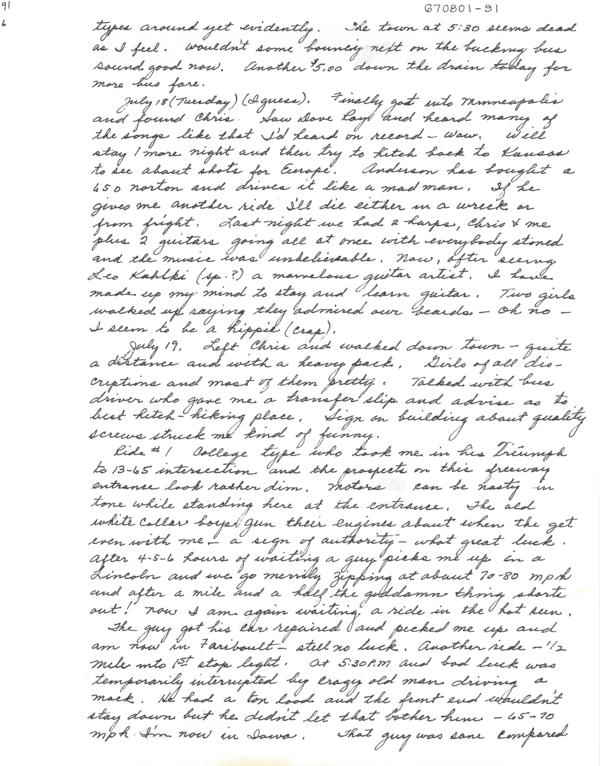 91
6
670801-91
types around yet evidently. The town at 5:30 seems dead
as I feel. Wouldn't some bouncing next on the bucking bus
sound good now. Another $5.00 down the drain today for
more bus fare.
July 18 (Tuesday) (I guess). Finally got into Minneapolis
and found Chris. Saw Dave Ray and heard many of
the songs like that I'd heard on record - wow. Will
stay 1 more night and then try to hitch back to Kansas
to see about shots for Europe. Anderson has bought a
650 Norton and drives it like a mad man. If he
gives me another ride I'll die either in a wreck or
from fright. Last night we had 2 harps, Chris & me
plus 2 guitars going all at once with everybody stoned
and the music was unbelievable. Now, after seeing
Leo Kahlki (sp.?) a marvelous guitar artist. I have
made up my mind to stay and learn guitar. Two girls
walked up saying they admired our beards - oh no -
I seem to be a hippie (crap).
July 19. Left Chris and walked down town - quite
a distance and with a heavy pack. Girls of all dis-
criptions and most of them pretty. Talked with bus
driver who gave me a transfer slip and advise as to
best hitch-hiking place. Sign on building about quality
screws struck me kind of funny.
Ride #1 College type who took me in his Triumph
to 13-65 intersection and the prospects on this freeway
entrance look rather dim. Motors can be nasty in
tone while standing here at the entrance. The old
white collar boys gun their engines about when the get
even with me - a sign of authority - what great luck.
After 4-5-6 hours of waiting a guy picks me up in a
Lincoln and we go merrily zipping at about 70-80 mph
and after a mile and a half the goddamn thing shorts
out! Now I am again waiting a ride in the hot sun.
The guy got his car repaired and picked me up and
am now in Faribault - still no luck. Another ride - 1/2
mile into 1st stop light. At 5:30 P.M and bad luck was
temporarily interrupted by crazy old man driving a
mack. He had a ton load and the front end wouldn't
stay down but he didn't let that bother him - 65-70
mph. I'm now in Iowa. That guy was sane compared